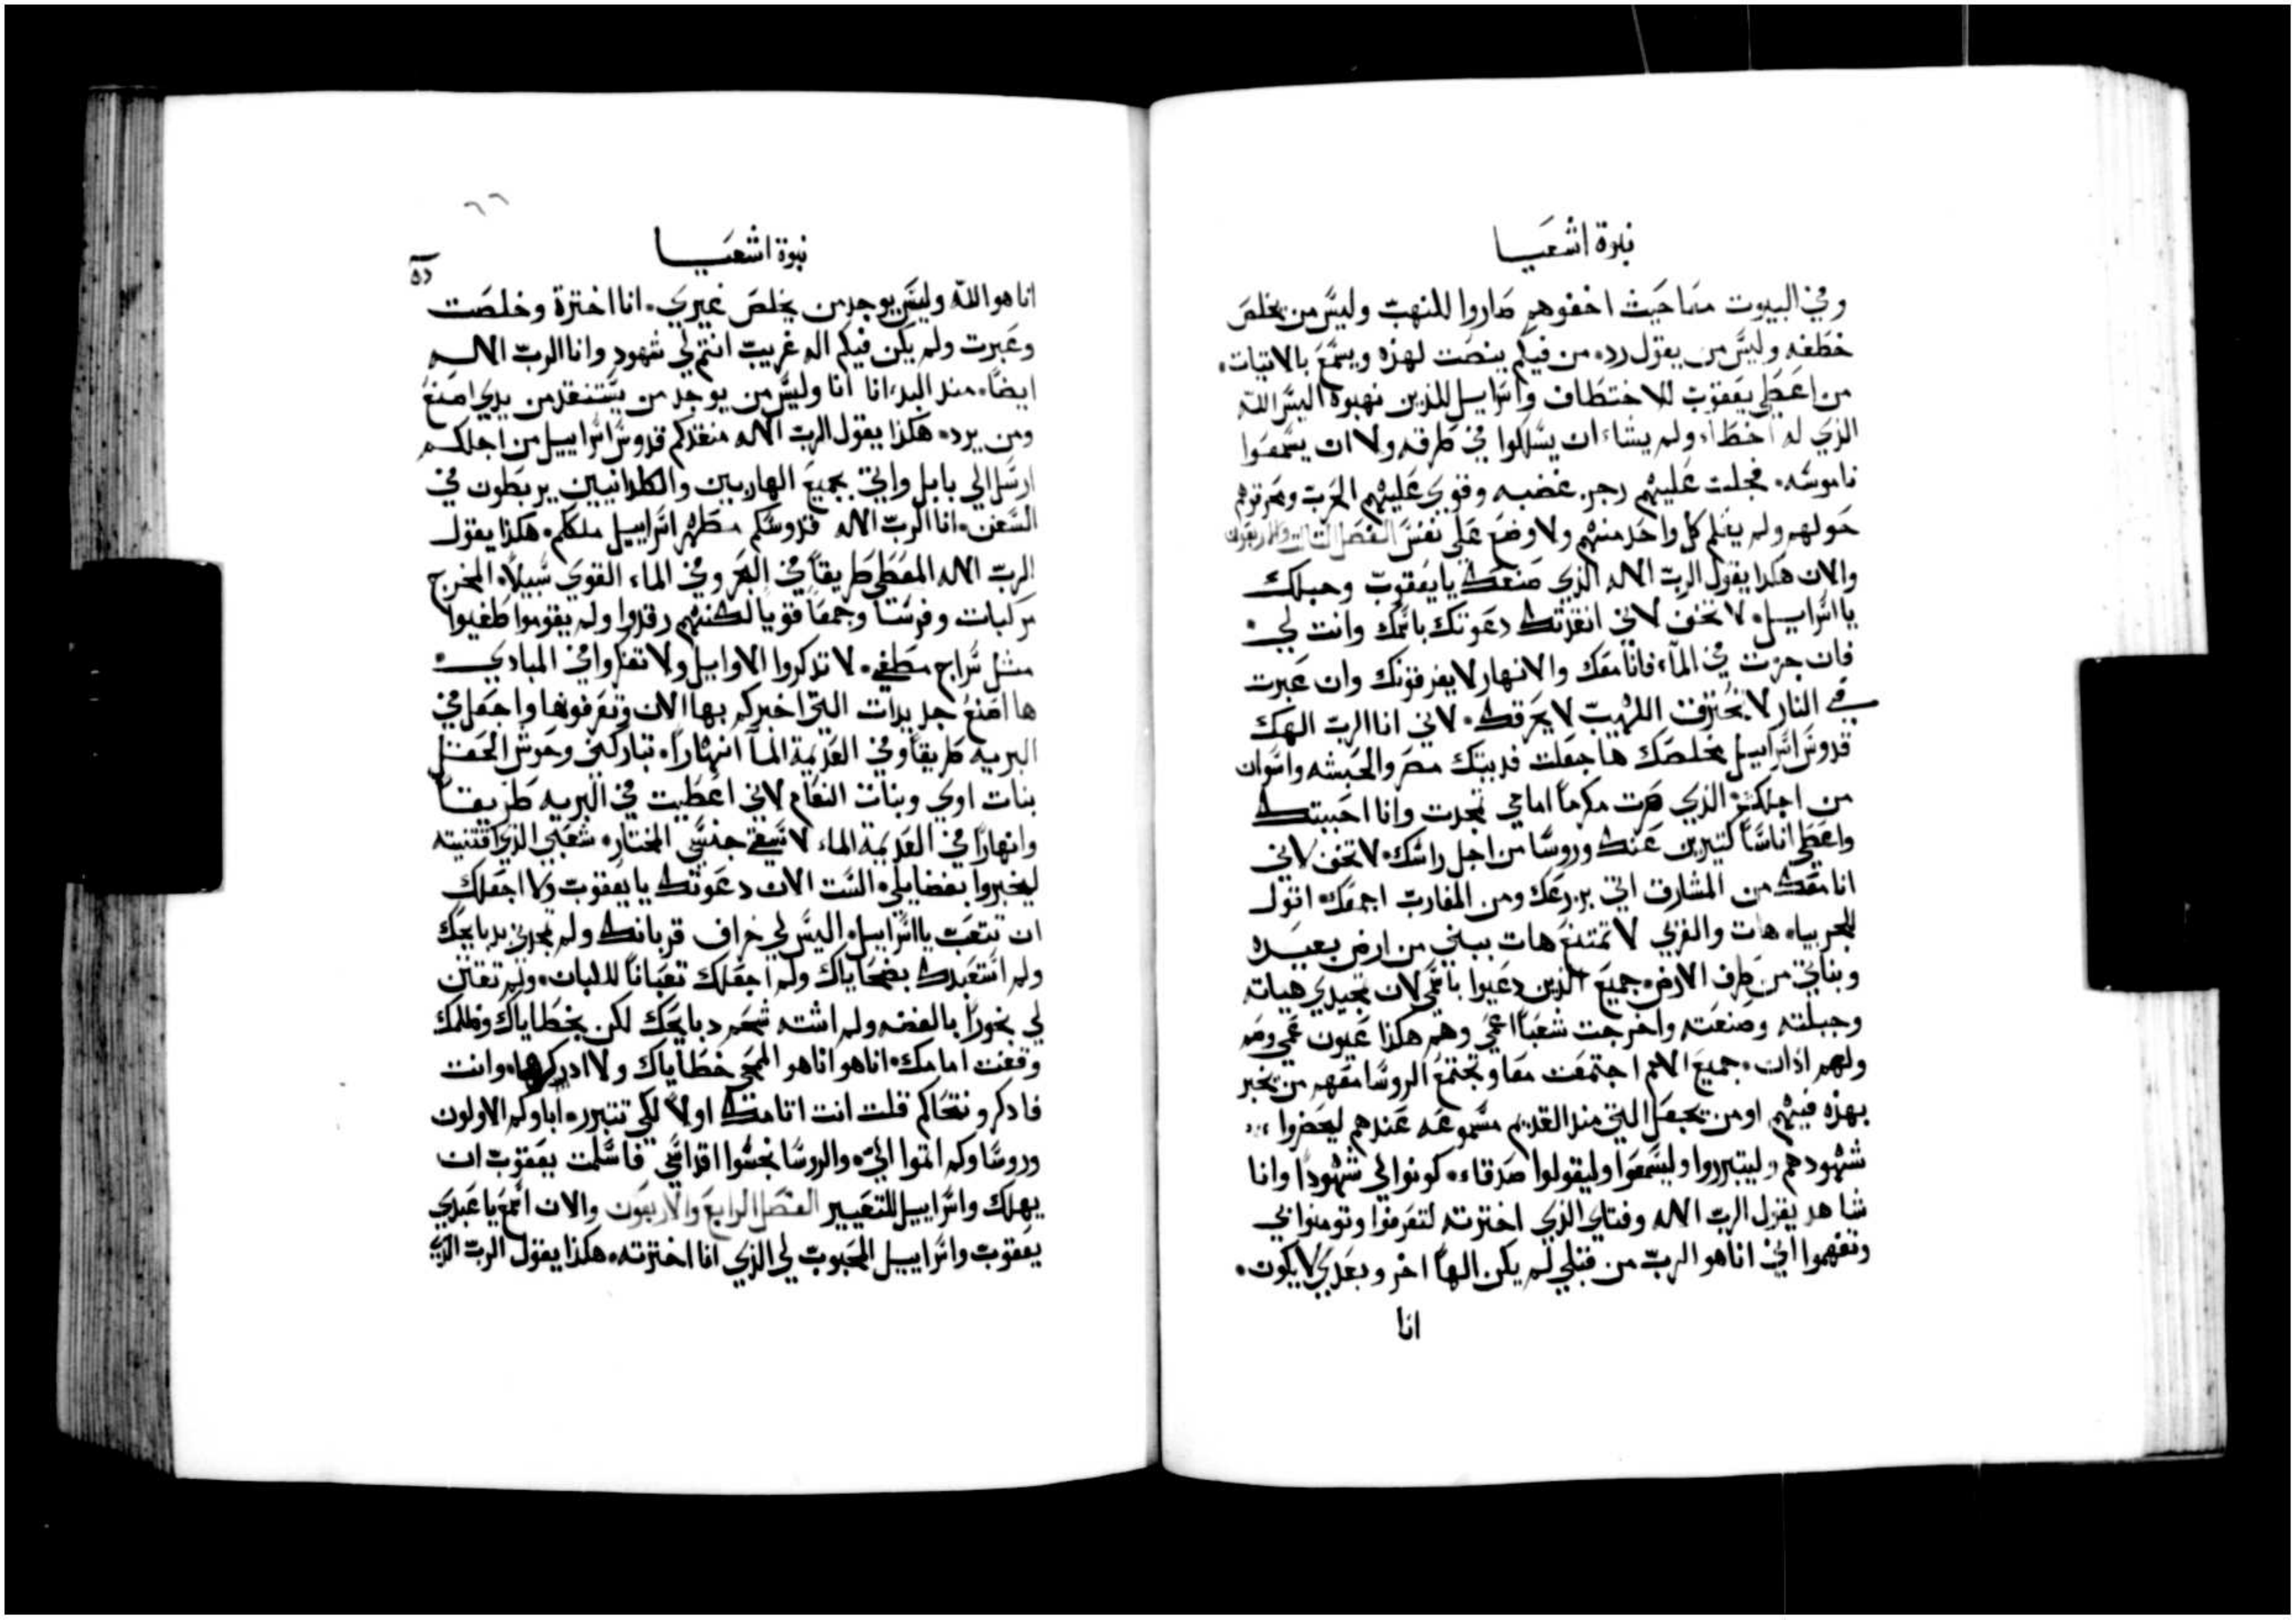 نبوة اشعيا
وفي البيوت معا حيث اخفوهم صاروا للنهب وليس من يخلص
خطفه وليس من يقول رده من فيكم ينصت لهذه ويسمع بالاتيات.
من اعطي يعقوب للاختطاف واسراييل للذين نهبوه اليس الله
الذي له اخطاء ولم يشاء ان يسلكوا في طرقه ولا ان يسمعوا
ناموسه. فجلب عليهم رجز غضبه وقوي عليهم الحرب ومحرقوهم
حولهم ولم يعلم كل واحد منهم ولا وضع علي نفس الفصل الثالت والاربعون
والان هكذا يقول الرب الاله الذي صنعك يا يعقوب وجبلك
يا اسراييل. لا تخف لاني انقذتك دعوتك باسمك وانت لي.
فان جزت في الماء فانا معك والانهار لا يغرقونك وان عبرت
في النار لا تحترق اللهيب لا يحرقك. لاني انا الرب الهك
قدوس اسراييل مخلصك ها جعلت فديتك مصر والحبشه واسوان
من اجلك. الذي صرت مكرماً امامي تمجدت وانا احببتك
واعطي اناساً كتيرين عنك وروسا من اجل راسك. لا تخف لاني
انا معك من المشارق اتي بزرعك ومن المغارب اجمعك. اقول
للجربياء هات والغربي لا تمتنع هات ببني من ارض بعيده
وبناتي من طرف الارض. جميع الذين دعيوا باسمي لان بمجدي هياته
وجبلته وصنعته واخرجت شعباً اعمي وهم هكذا عيون عمي وصم
ولهم اذان. جميع الامم اجتمعت معا وتجتمع الروسا معهم من يخبر
بهذه فيهم او من يجعل التي منذ القديم مسموعه عندهم ليحضروا
شهودهم وليتبرروا وليسمعوا وليقولوا صدقاء. كونوا لي شهوداً وانا
شاهد يقول الرب الاله وفتاي الذي اخترته لتعرفوا وتومنوا بي
وتفهموا اني انا هو الرب من قبلي لم يكن الهاً اخر وبعدي لا يكون.
انا
٦٦
نبوة اشعيا
انا هو الله وليس يوجد من يخلص غيري. انا اخترة وخلصت
وعبرت ولم يكن فيكم اله غريب انتم لي شهود وانا الرب الاله
ايضاً. منذ البدء انا انا وليس من يوجد من يستنقذ من يدي اصنع
ومن يرد. هكذا يقول الرب الاله منقذكم قدوس اسراييل من اجلكم
ارسل الي بابل واتي بجميع الهاربين والكلدانيين يربطون في
السفن. انا الرب الاله قدوسكم مطهر اسراييل ملككم. هكذا يقول
الرب الاله المعطي طريقاً في البحر وفي الماء القوي سبيلاً. المخرج
مركبات وفرسا وجمعاً قوياً لكنهم رقدوا ولم يقوموا طفيوا
مثل سراج مطفي. لا تذكروا الاوايل ولا تفكروا في المبادي.
ها اصنع جديدات التي اخبركم بها الان وتعرفونها واجعل في
البريه طريقاً وفي العديمة الماء انهاراً. تباركني وحوش الحقل
بنات اوي وبنات النعام لاني اعطيت في البريه طريقاً
وانهاراً في العديمة الماء لاسقي جنسي المختار. شعبي الذي اقتنيته
ليخبروا بفضايلي. الست الان دعوتك يا يعقوب ولا اجعلك
ان تتعب يا اسراييل. اليس لي خراف قربانك ولم تمجدني بدبايحك
ولم استعبدك بضحاياك ولم اجعلك تعباناً للبان. ولم تقتن
لي بخوراً بالفضه ولم اشته شحم دبايحك لكن بخطاياك وظلمك
وقفت امامك. انا هو انا هو الممحي خطاياك ولا ادكرها. وانت
فادكر ونتحاكم قلت انت اتامك اولاً لكي تتبرر. اباوكم الاولون
وروساوكم اتموا الي. والروسا نجسوا اقداسي فاسلمت يعقوب ان
يهلك واسراييل للتعيير الفصل الرابع والاربعون والان اسمع يا عبدي
يعقوب واسراييل المحبوب لي الذي انا اخترته. هكذا يقول الرب الاله